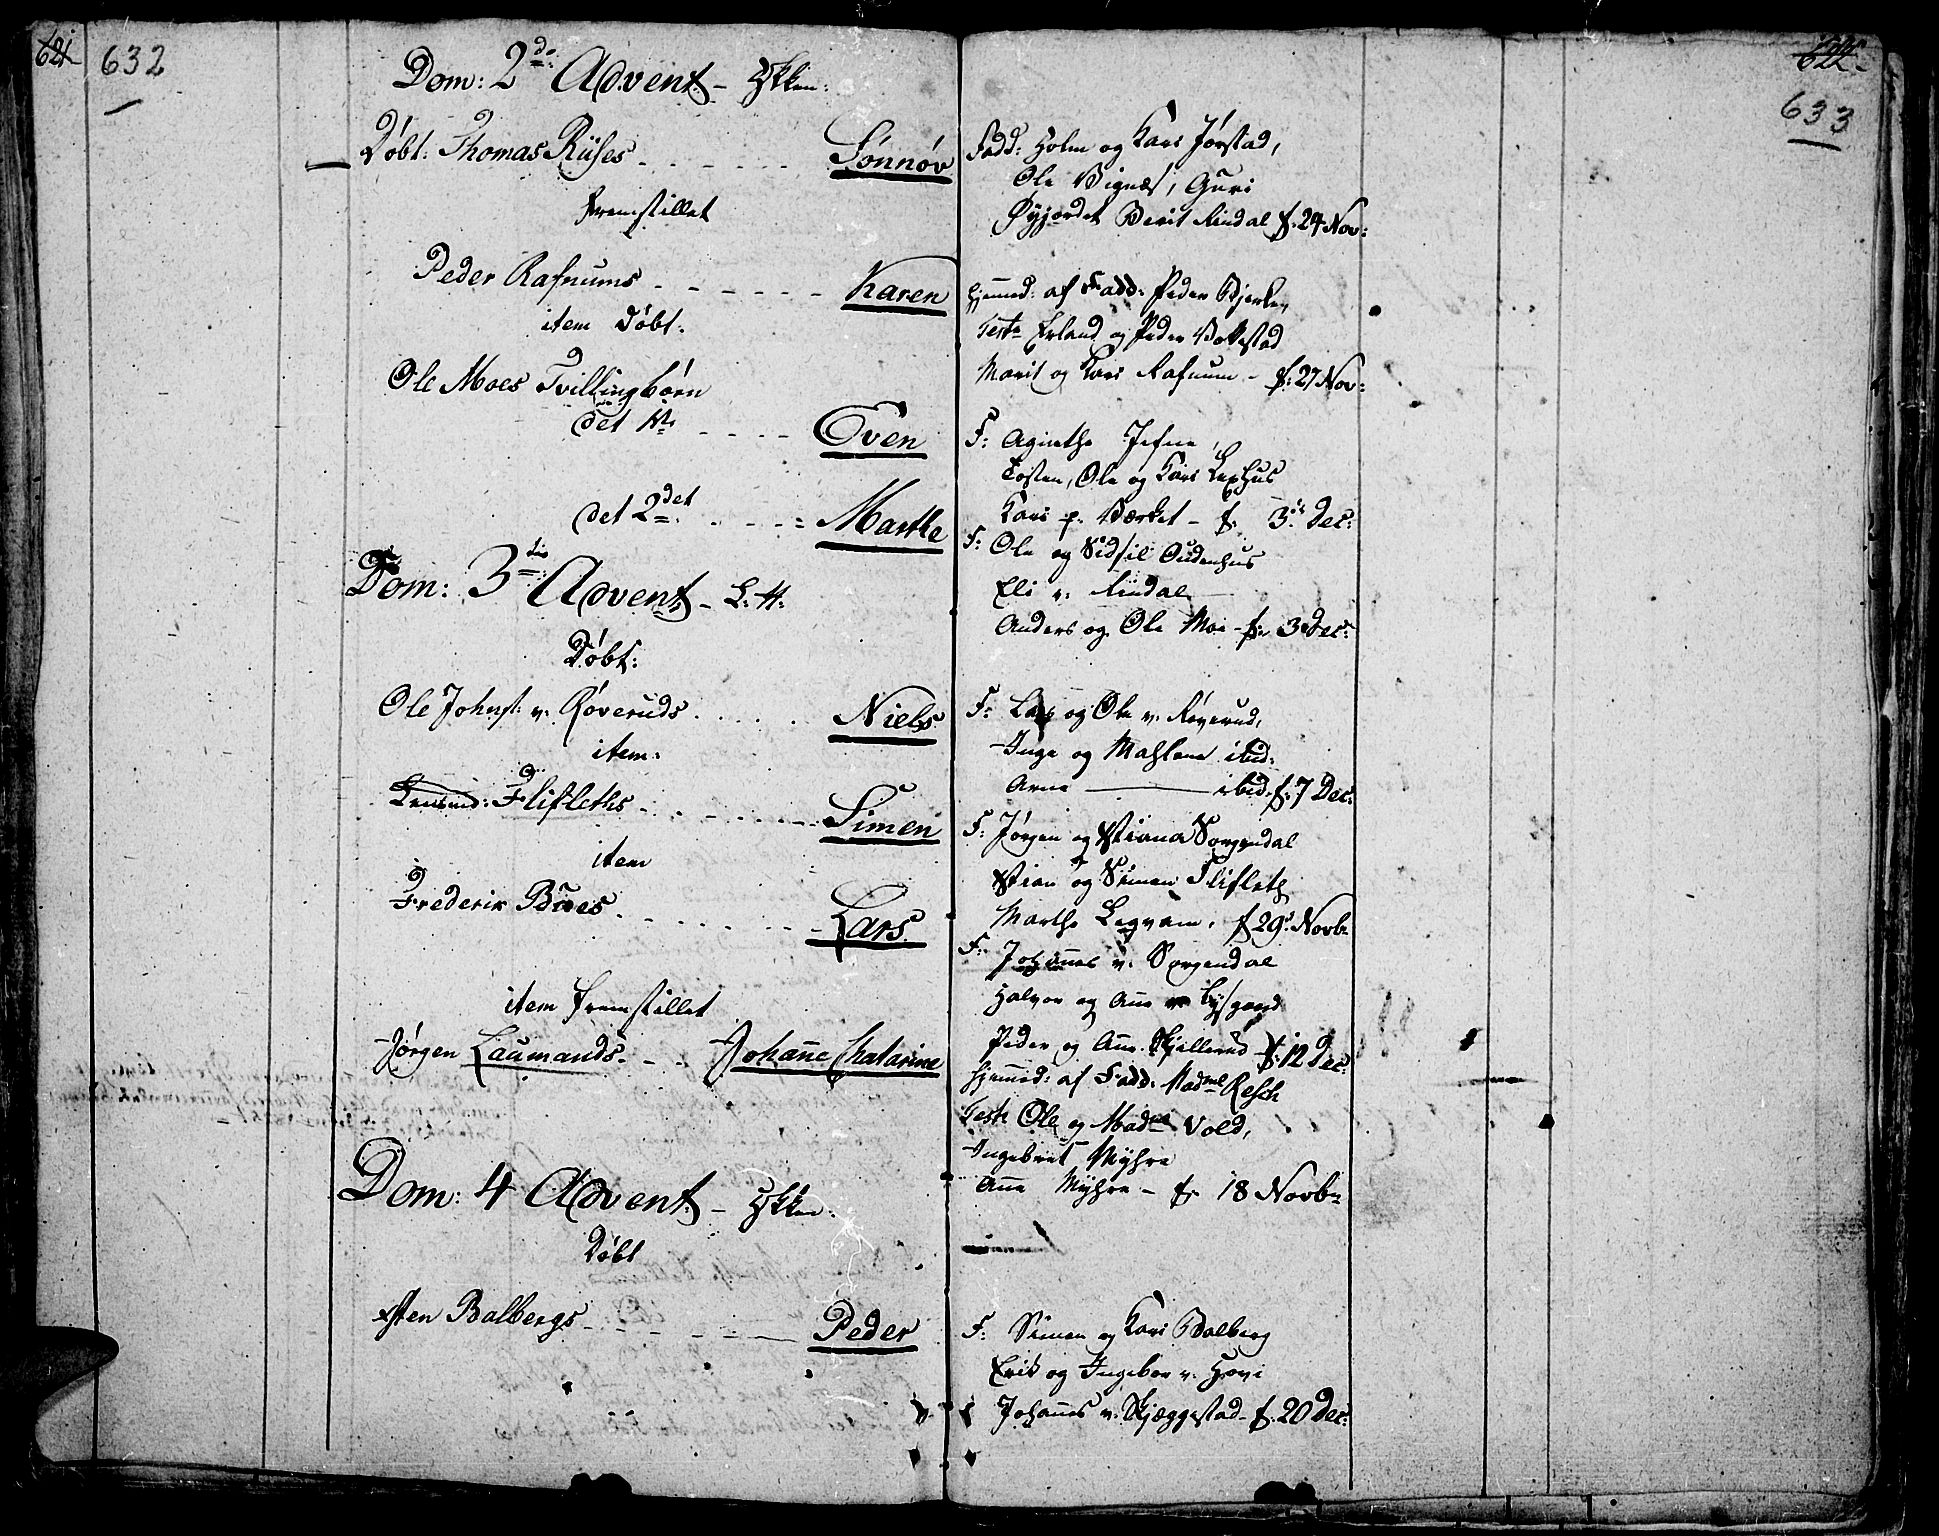 621
632
Dom: 2do Advent - Øÿen:
Døbt: Thomas Rüses - - - - - - Sønnøv
fremstillet
Peder Rafnums - - - - - - Karen
item Døbt.
Ole Moes Tvillingbørn
det 1ste - - - - Even
det 2det - - - - Marthe
Dom: 3tie Advent - L: H:
Døbt:
Ole Johns: v. Røveruds - - - - - Niels
item:
Flifleths - - - - - - Simen
item
Frederik Bües - - - - - - Lars
item fremstillet
Jørgen Laumands - - - Johanne Chatarine
Dom: 4 Advent -
Døbt
Balbergs - - - - - - Peder
622
633
Fadd: Holm og Kari Jørstad,
Ole Vignæs, Guri
Øyjordet Berit Rindal f. 24 Nov:
hjemmed: af Fadd: Peder Bjerke,
Teste Erland og Peder
Marit og Kari Rafnum - f: 27 Nov:
F: Agnethe Jefne,
Tosten, Ole og Kari Lexhus
Kari p. Værket - f. 3die Dec:
F: Ole og Sidsil Oudenhus
Eli v. Rindal
Anders og Ole Moe - f. 3 Dec:
F: Lars og Ole v. Røverud,
Inge og Mahlene ibid:
Arne ibid. f: 7 Dec:
F: Jørgen og Stiana Sorgendal
Stian og Simen Flifleth
Marthe Legvam, f 29 Novbr
F: Johannes v. Sorgendal
Halvor og Ane Lysgaard
Peder og Ane Skjellerud f: 12 Dec:
hjemmed: af Fadd: Madme Resch
Teste Ole og Madme Vold,
Ingebret Myhre
Ane Myhre - f. 18 Novbr
F: Simen og Kari Balberg
Erik og Ingebor v. Hovi
Johannes v. Skjæggestad - f. 20 Dec: